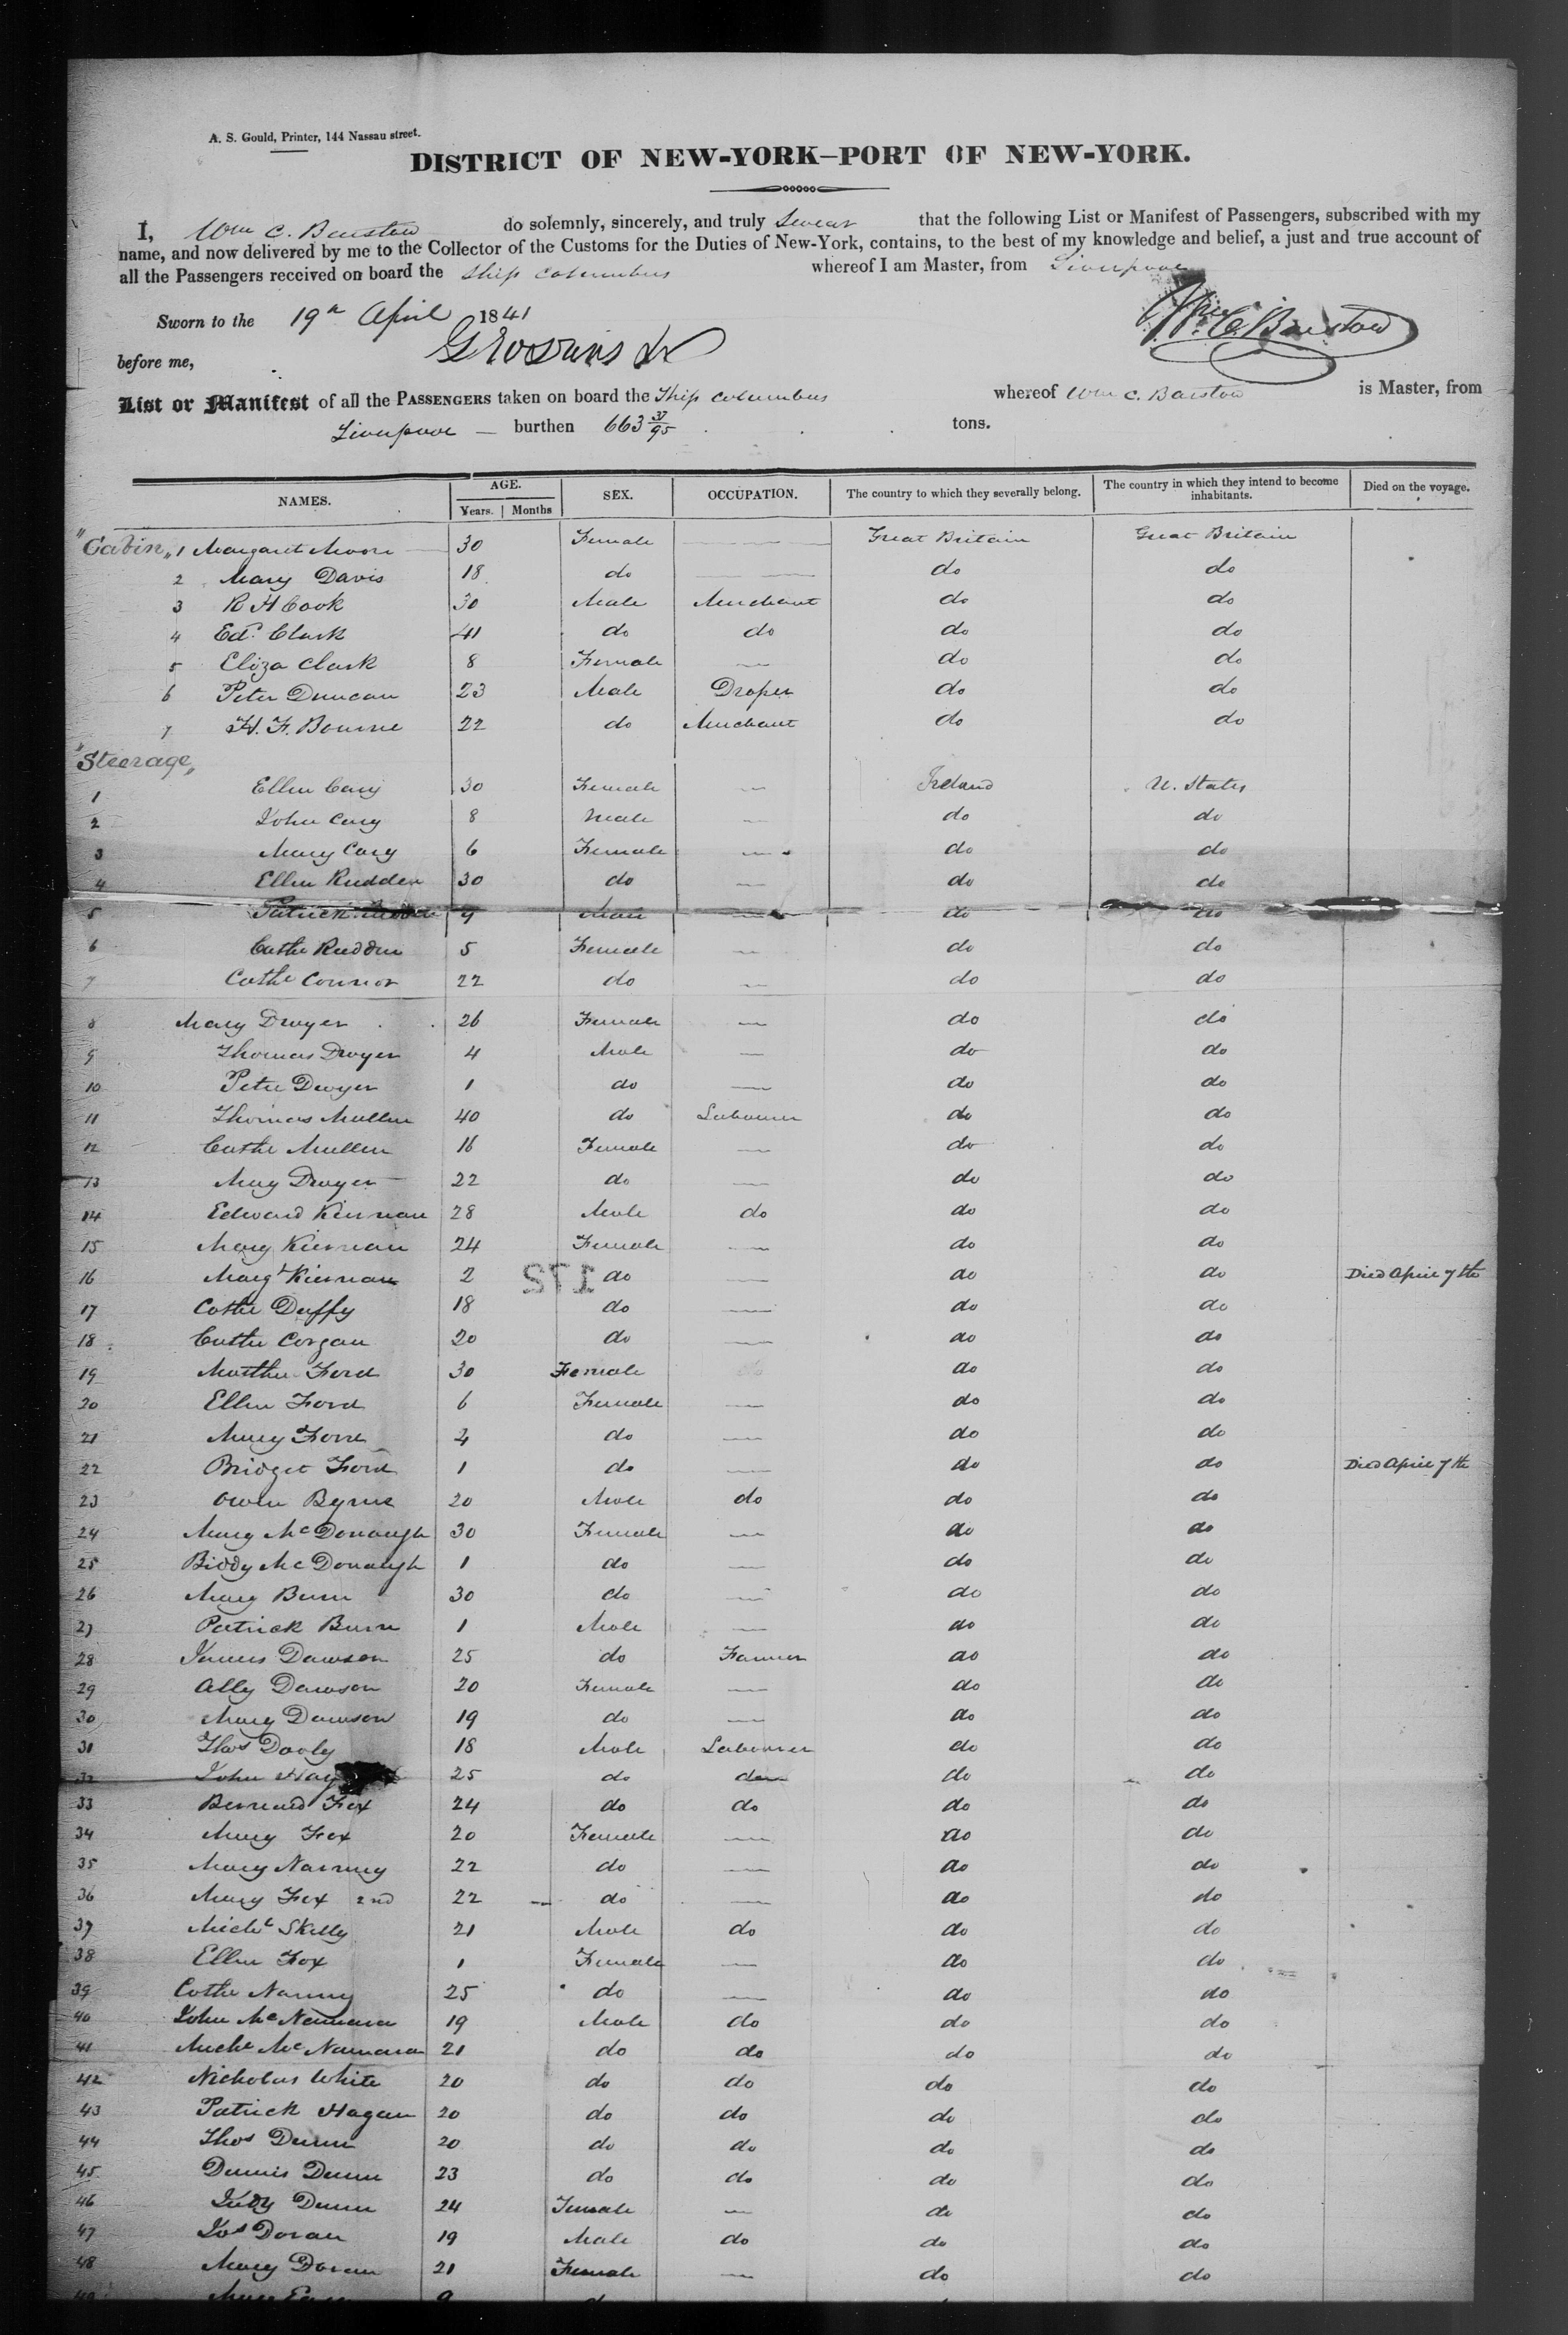 A. S. Gould, Printer, 144 Nassau street.
DISTRICT OF NEW-YORK–PORT OF NEW-YORK.
I, Wm C. Barstow do solemnly, sincerely, and truly Swear that the following List or Manifest of Passengers, subscribed with my
name, and now delivered by me to the Collector of the Customs for the Duties of New-York, contains, to the best of my knowledge and belief, a just and true account of
all the Passengers received on board the Ship Columbus whereof I am Master, from Liverpool
Sworn to the 19th April 1841
Wm. C. Barstow
before me,
List or Manifest of all the PASSENGERS taken on board the Ship Columbus whereof Wm C. Barstow is Master, from
Liverpool — burthen 663 37/95 tons.
NAMES. AGE. Years. | Months SEX. OCCUPATION. The country to which they severally belong. The country in which they intend to become inhabitants. Died on the voyage.
"Cabin" 1 Margaret Moore 30 Female — Great Britain Great Britain
2 Mary Davis 18 do — do do
3 R H Cook 30 Male Merchant do do
4 Edd. Clark 41 do do do do
5 Eliza Clark 8 Female — do do
6 Peter Duncan 23 Male Draper do do
7 H. F. Bourne 22 do Merchant do do
"Steerage"
1 Ellen Cary 30 Female — Ireland U. States
2 John Cary 8 Male — do do
3 Mary Cary 6 Female — do do
4 Ellen Rudden 30 do — do do
5 Patrick 9 Male — do do
6 Cathe Rudden 5 Female — do do
7 Cathe Connor 22 do — do do
8 Mary Dwyer 26 Female — do do
9 Thomas Dwyer 4 Male — do do
10 Peter Dwyer 1 do — do do
11 Thomas Mullen 40 do Labourer do do
12 Cathe Mullen 16 Female — do do
13 Mary Dwyer 22 do — do do
14 Edward Kiernan 28 Male do do do
15 Mary Kiernan 24 Female — do do
16 Margt Kiernan 2 do — do do Died April 7th
172
17 Cathe Duffy 18 do — do do
18 Cathe Corgan 20 do — do do
19 Martha Ford 30 Female do do
20 Ellen Ford 6 Female — do do
21 Mary Ford 4 do — do do
22 Bridget Ford 1 do — do do Died April 7th
23 Owen Byrne 20 Male do do do
24 Mary McDonaugh 30 Female — do do
25 Biddy McDonaugh 1 do — do do
26 Mary Burn 30 do — do do
27 Patrick Burn 1 Male — do do
28 James Dawson 25 do Farmer do do
29 Ally Dawson 20 Female — do do
30 Mary Dawson 19 do — do do
31 Thos Dooly 18 Male Labourer do do
32 John 25 do do do do
33 Bernard Fox 24 do do do do
34 Mary Fox 20 Female — do do
35 Mary Narney 22 do — do do
36 Mary Fox 2nd 22 do — do do
37 Michl Skelly 21 Male do do do
38 Ellen Fox 1 Female — do do
39 Cathe Nanny 25 do — do do
40 John McNamara 19 Male do do do
41 Michl McNamara 21 do do do do
42 Nicholas White 20 do do do do
43 Patrick Hagan 20 do do do do
44 Thos Dunn 20 do do do do
45 Dennis Dunn 23 do do do do
46 Judy Dunn 24 Female — do do
47 Jos Doran 19 Male do do do
48 Mary Doran 21 Female — do do
49 Mary